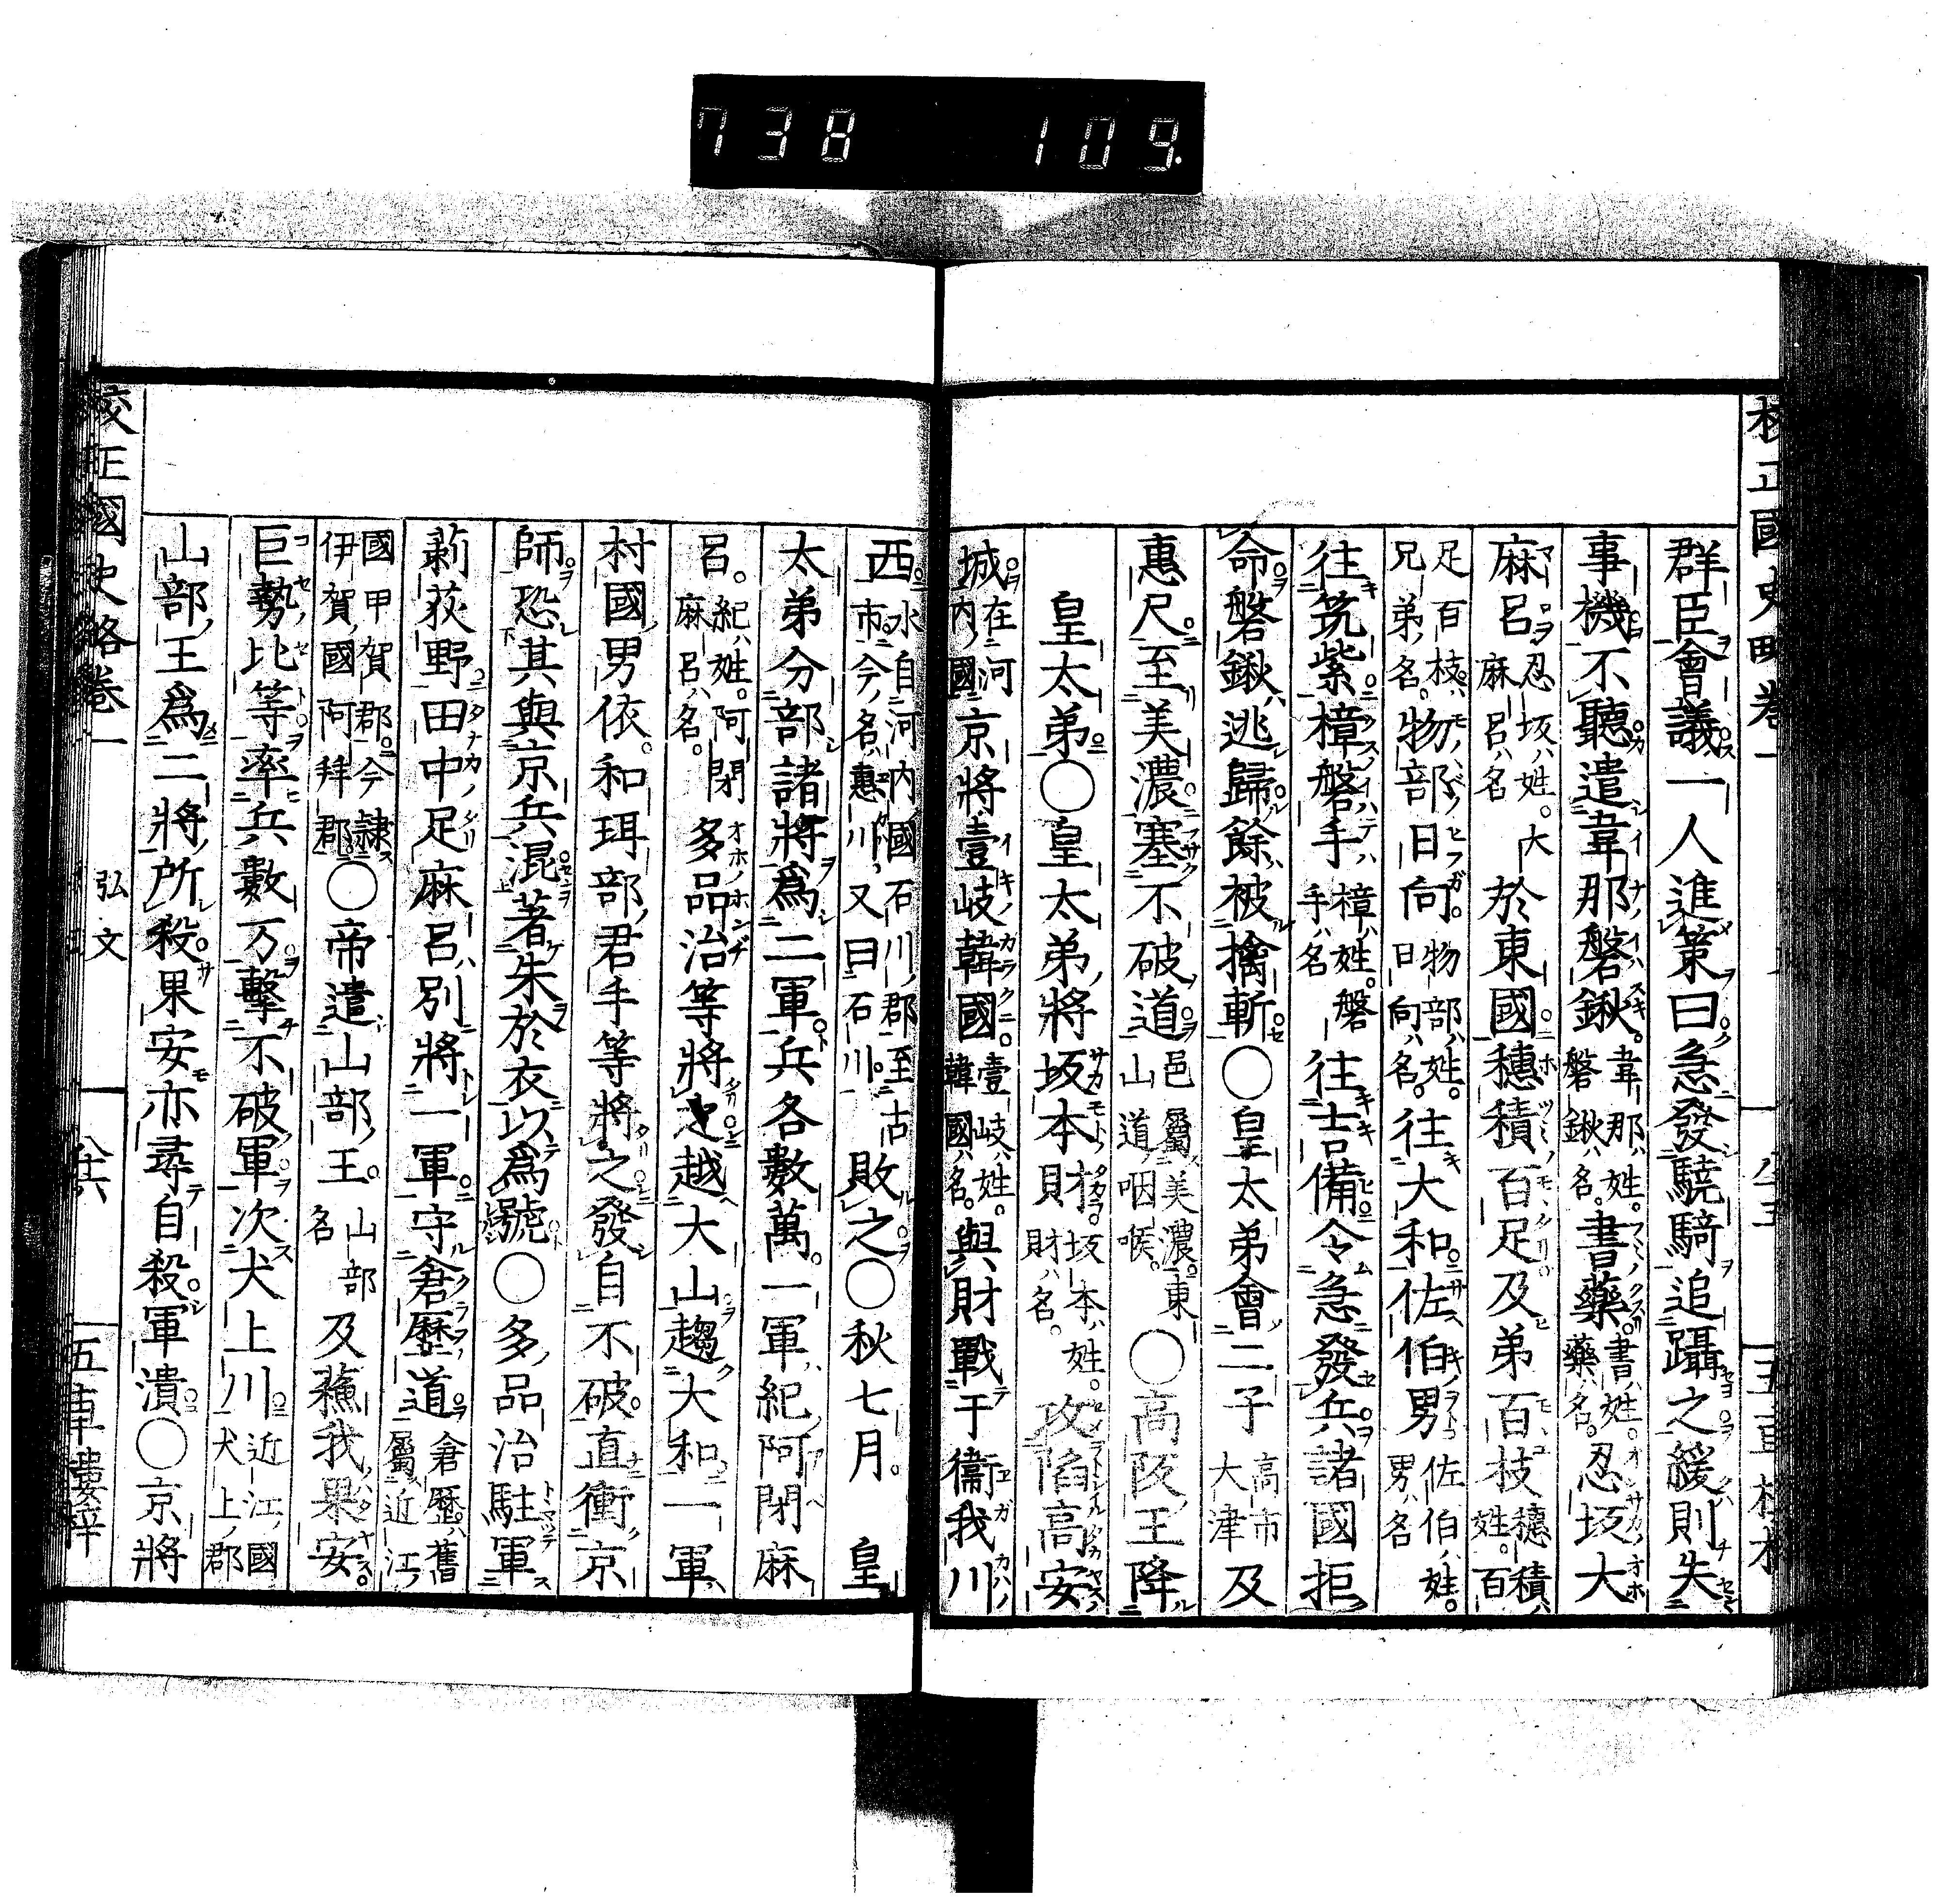 738 109.
群臣會議一人進策曰急發驍騎追躡之緩則失
事機不聽遣韋那磐鍬韋那ハ姓。磐鍬ハ名。書藥書ハ姓。藥ハ名。忍坂大
麻呂忍坂ハ姓。大麻呂ハ名於東國穗積百足及弟百枝穗積ハ姓。百
足百枝ハ兄弟ノ名。物部日向。物部ハ姓。日向ハ名。往大和佐伯男佐伯ハ姓。男ハ名
往筑紫樟磐手樟ハ姓。磐手ハ名往吉備令急發兵諸國拒
命磐鍬逃歸餘被擒斬○皇太弟會二子高市大津及
惠尺至美濃塞不破道邑屬美濃東山道咽喉。○高阪王降
皇太弟○皇太弟將坂本財坂本ハ姓。財ハ名。攻陷高安
城在河内國京將壹岐韓國。壹岐ハ姓。韓國ハ名。與財戰于衞我川
西水自河内國石川郡至古市今名惠川又曰石川。敗之○秋七月。皇
太弟分部諸將爲二軍兵各數萬。一軍紀阿閉麻
呂。紀ハ姓。阿閉麻呂ハ名。多品治等將之越大山趨大和一軍
村國男依。和珥部君手等將之發自不破直衝京
師恐其與京兵混著朱於衣以爲號○多品治駐軍
莿荻野田中足麻呂別將一軍守倉歷道倉歷ハ舊屬近江
國甲賀郡今隷伊賀國阿拜郡○帝遣山部王。山部名及蘇我果安。
巨勢比等率兵數万擊不破軍次犬上川近江國犬上郡
山部王爲二將所殺果安亦尋自殺軍潰○京將
校正國史略卷一
弘文
五車樓梓